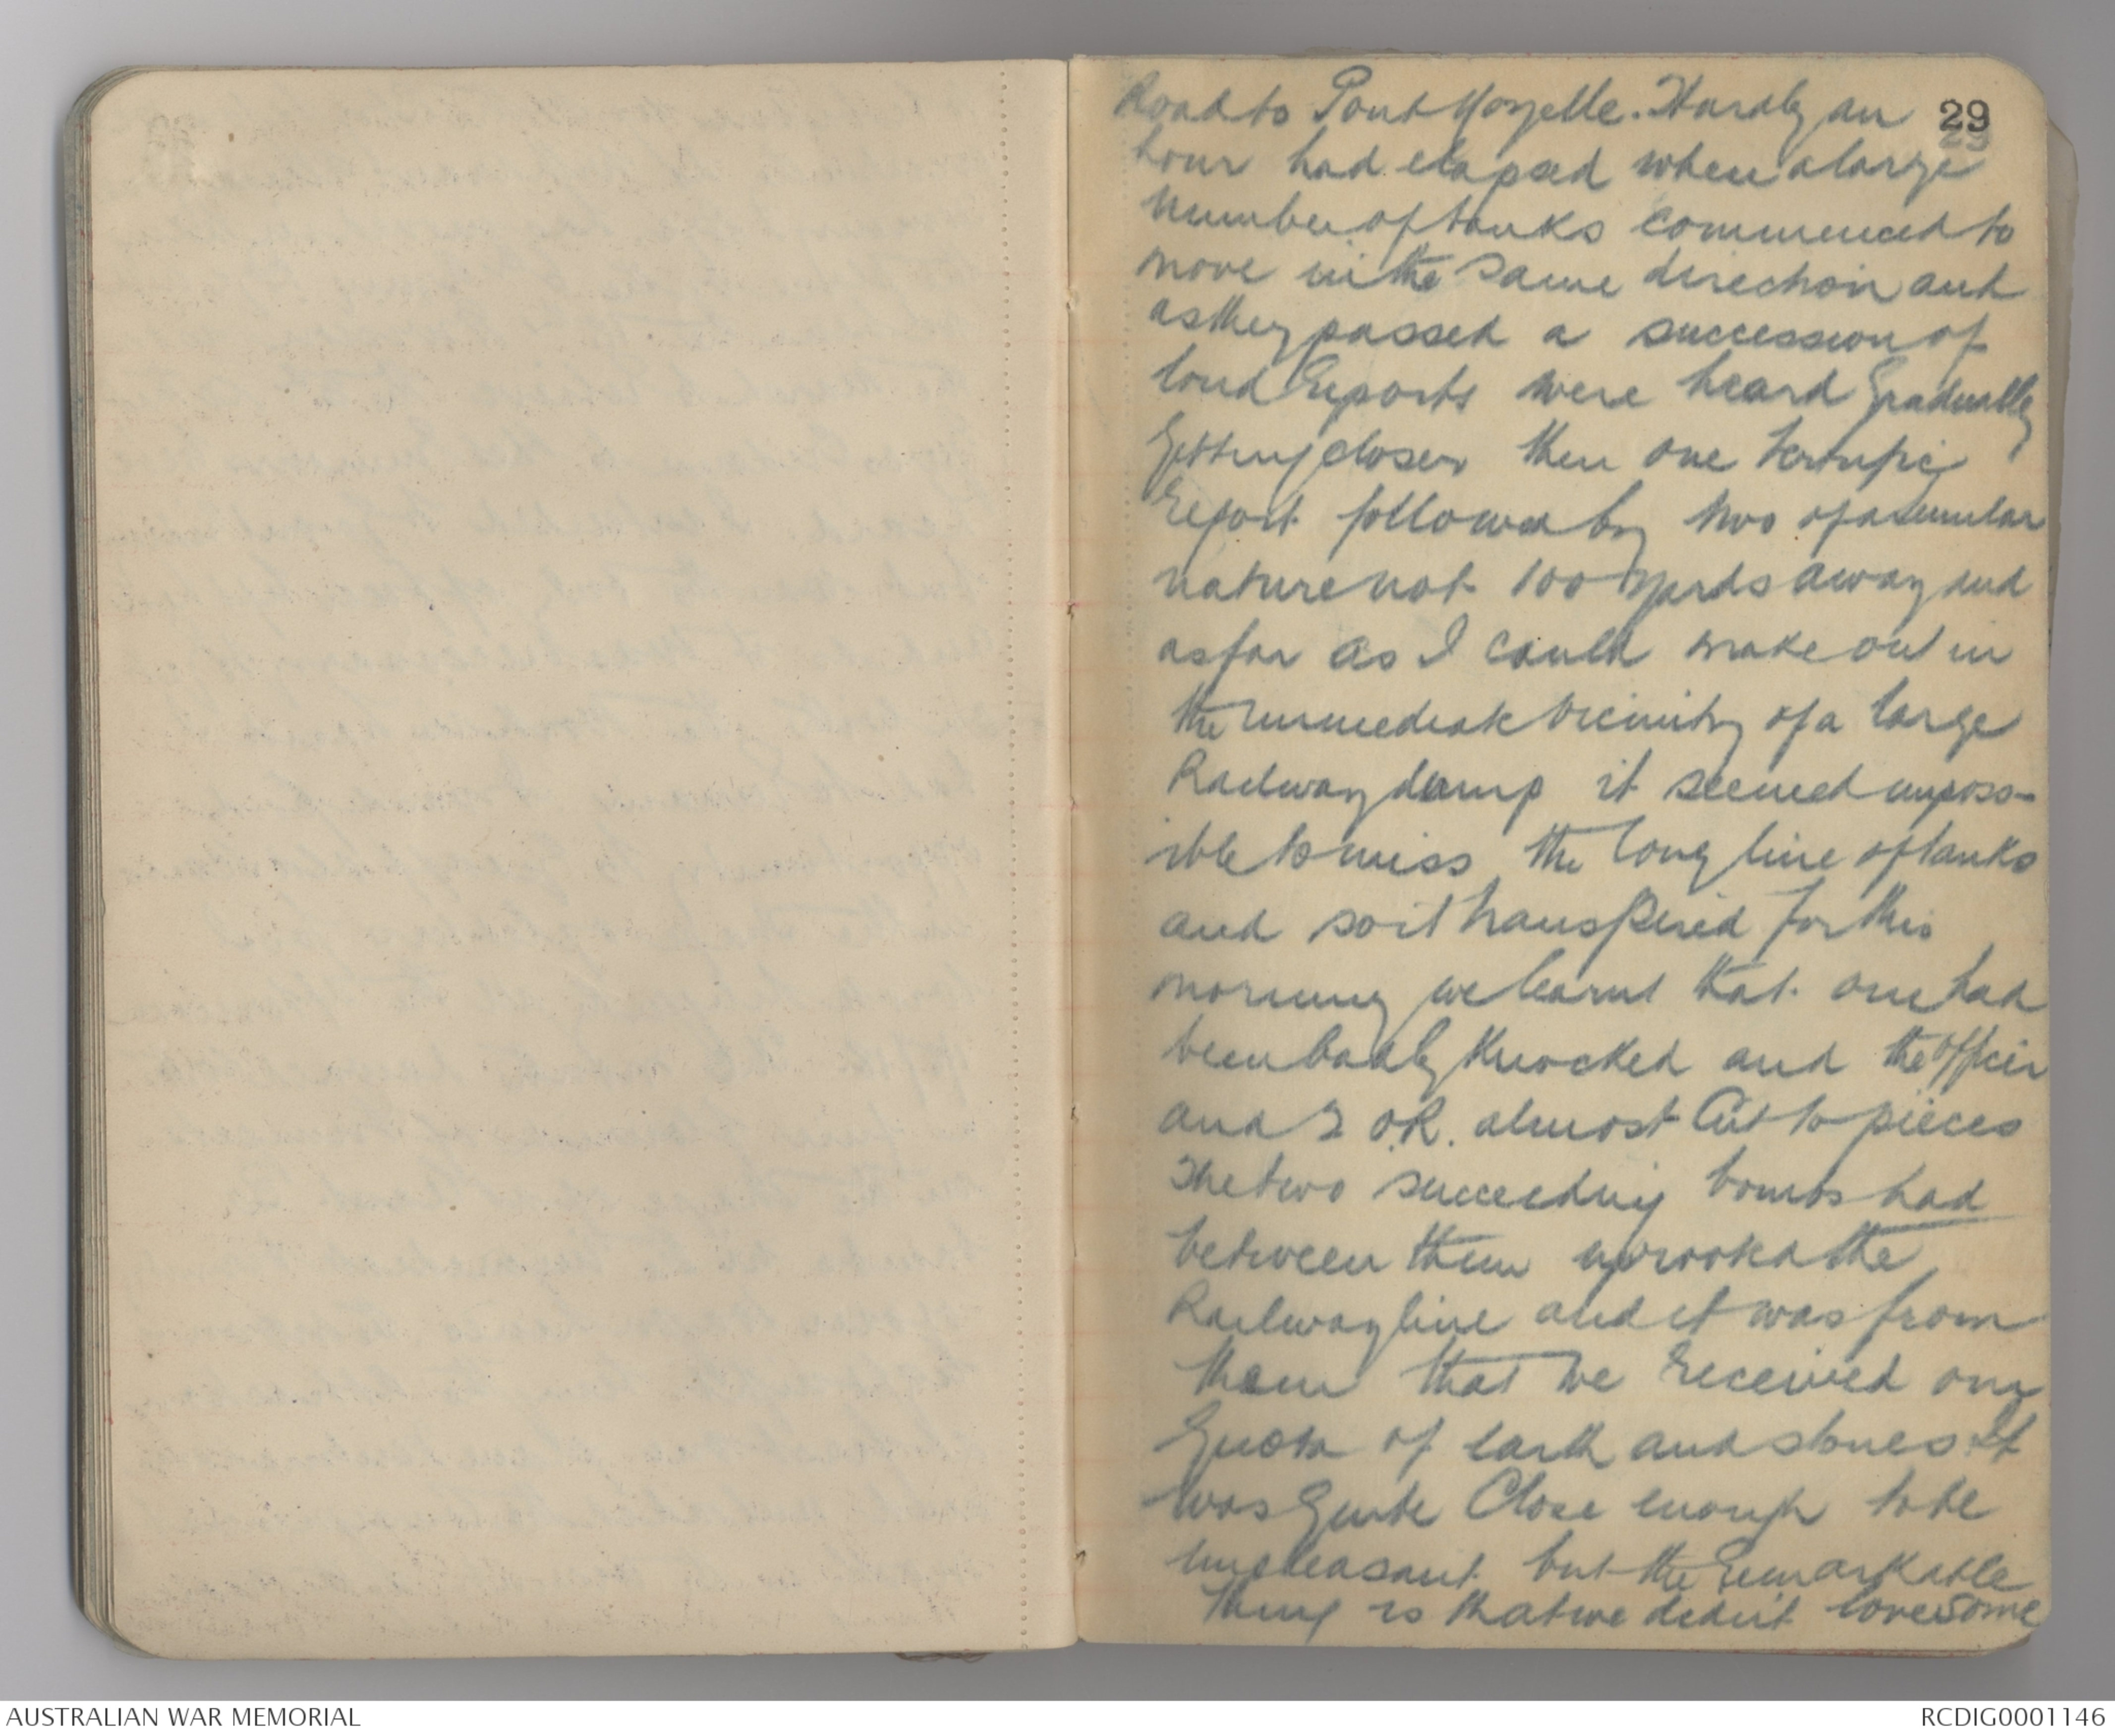 29
Road to Pont Noyelle. Hardly an
hour had elapsed when a large
number of tanks commenced to
move in the same direction and
as they passed a succession of
loud reports were heard gradually
getting closer then one terrific
report followed by two of a similar
nature not 100 yards away and
as far as I could make out in
the immediate vicinity of a large
Railway dump it seemed imposs-
ible to miss the long line of tanks
and so it transpired for this
morning we learnt that one had
been badly knocked and the officer
and 2 O.R. almost cut to pieces
The two succeeding bombs had
between them uprooted the
Railway line and it was from
them that we received our
quota of earth and stones. It
was quite close enough to be
unpleasant but the remarkable
thing is that we didn't lose some
AUSTRALIAN WAR MEMORIAL
RCDIG0001146